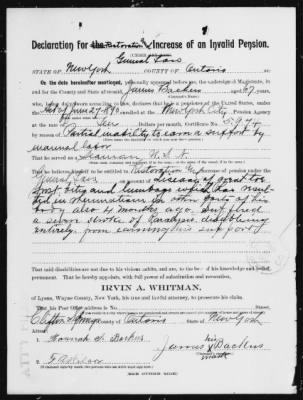 Declaration for the Restoration & Increase of an Invalid Pension.
General Law
STATE OF New York COUNTY OF Ontario ss:
On the date hereinafter mentioned, personally appeared before me, the undersigned Magistrate, in
and for the County and State aforesaid, James Backus aged 67 years,
who, being duly sworn according to law, declares that he is a pensioner of the United States, under the
Act of June 27-1890 enrolled at the New York City Pension Agency
at the rate of Ten Dollars per month, Certificate No.
by reason of Partial inability to earn a support by
manual labor
That he served as a Seaman U.S.N.
That he believes himself to be entitled to Restoration & increase of pension under the
General Law on account of
frost bity and lumbago which has resul-
ted in rheumatism in other parts of his
body also 4 months ago suffered
a severe stroke of Paralysis disabling
entirely from earning his support
That said disabilities are not due to his vicious habits, and are, to the best of his knowledge and belief,
permanent. That he hereby appoints, with full power of substitution and revocation,
IRVIN A. WHITMAN,
of Lyons, Wayne County, New York, his true and lawful attorney, to prosecute his claim.
That his Post Office Address is No. Street,
Clifton Springs County of Ontario State of New York
1. Hannah A. Backus his
James X Backus
mark
2.